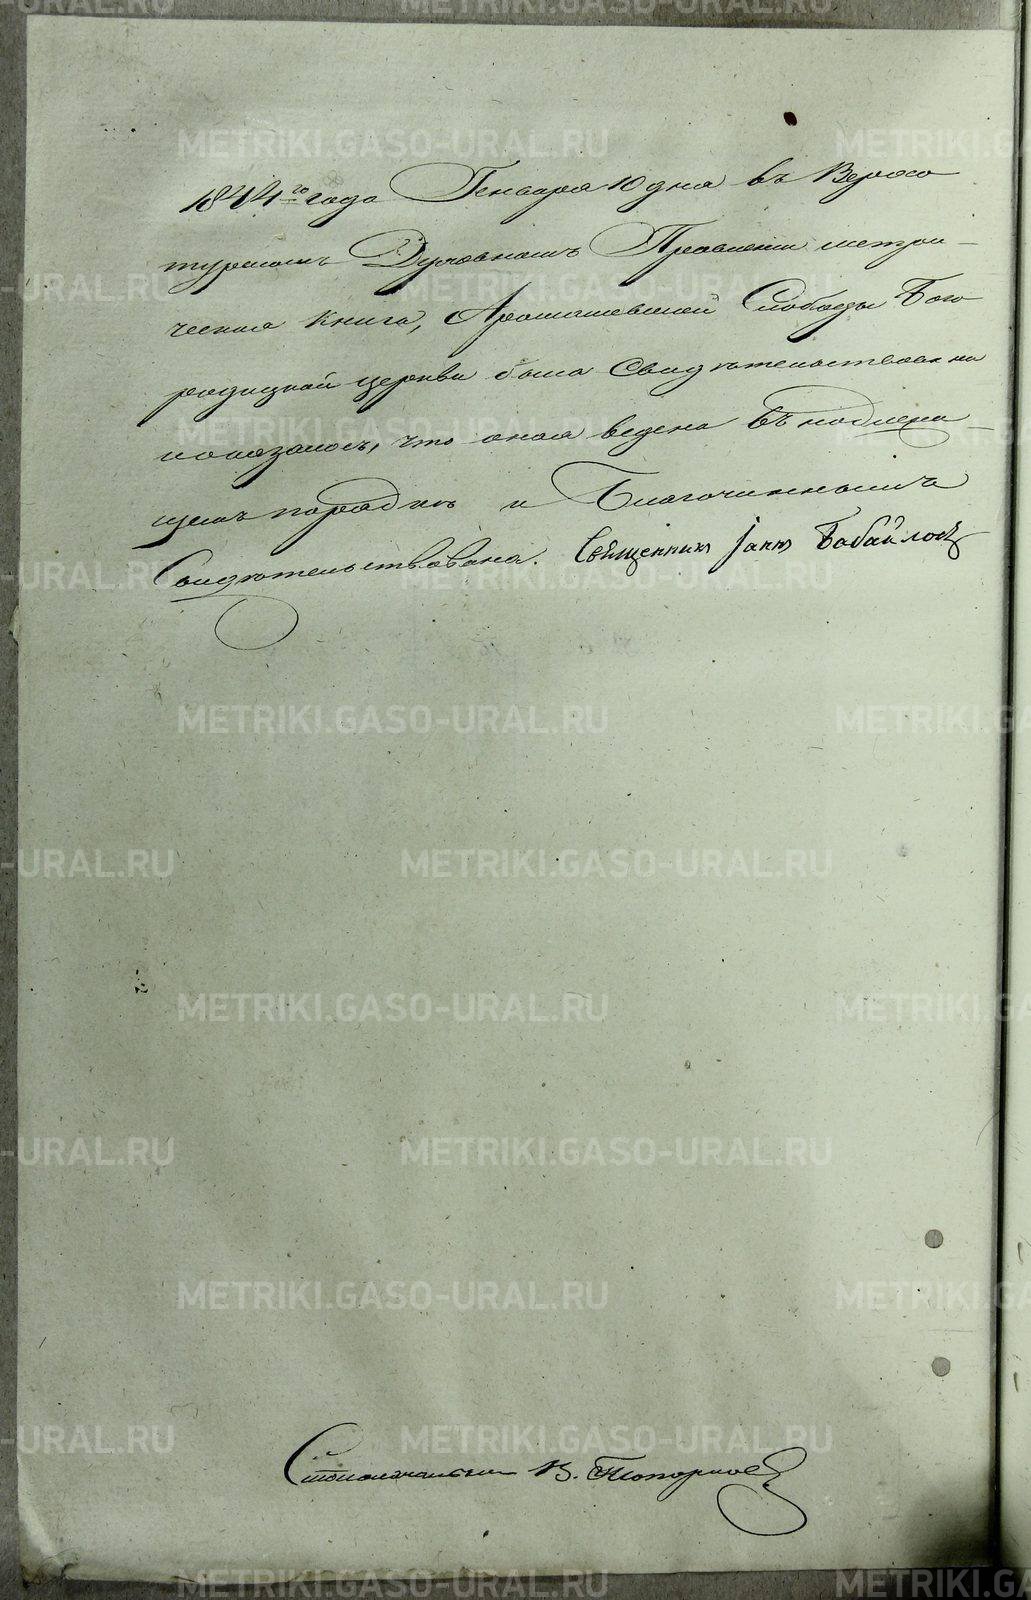 1844го года Генваря 10 дня въ Верхо
турскомъ Духовномъ Правленіи метри-
ческая книга, Арамашевской Слободы Бого
родицкой церкви была Свидѣтельствована и
показалось, что оная ведена въ надлежа-
щемъ порядкѣ и Благочиннымъ
Свидѣтельствована. Священник Іанн Бабайловъ
Столоначальникъ В. Топорковъ
METRIKI.GASO-URAL.RU